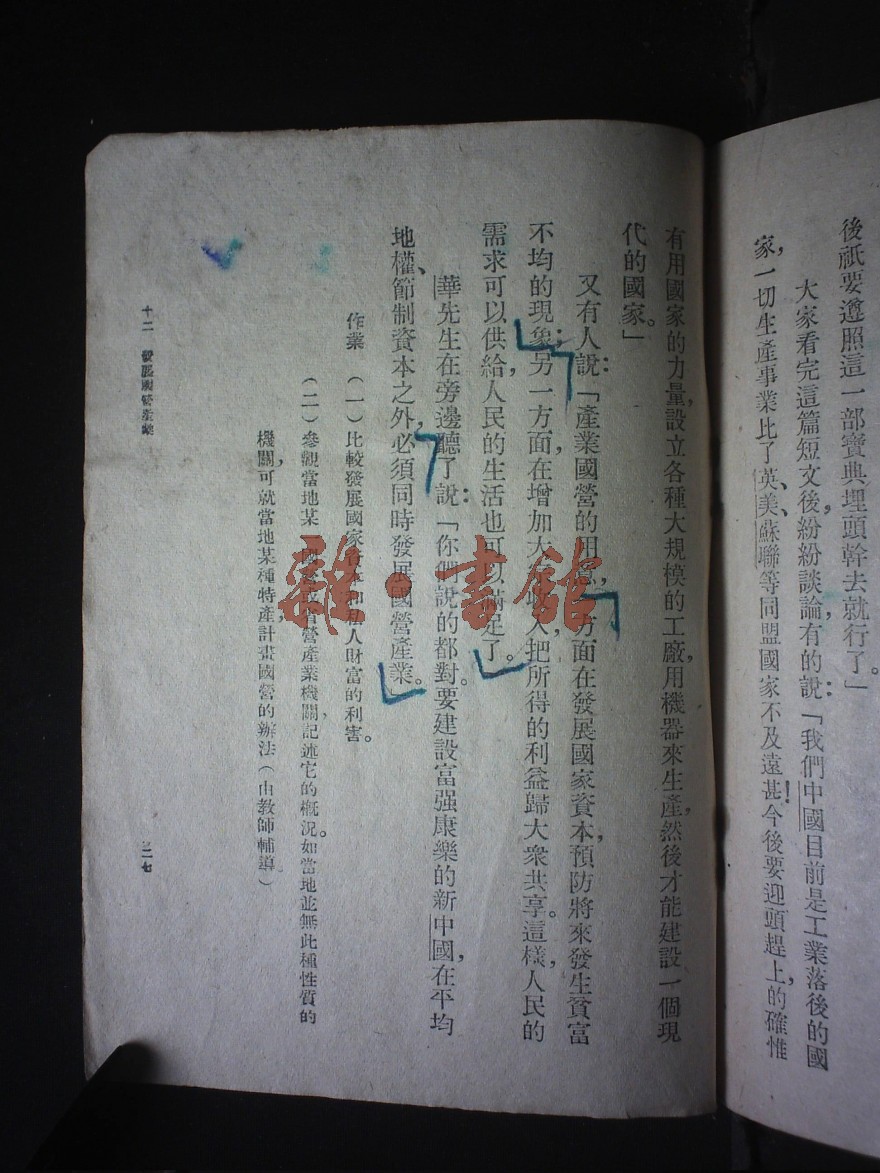 後祇要遵照這一部寶典埋頭幹去就行了。」
大家看完這篇短文後，紛紛談論，有的說：「我們中國目前是工業落後的國
家，一切生產事業，比了英、美、蘇聯等同盟國家，不及遠甚！今後要迎頭趕上的，確惟
有用國家的力量，設立各種大規模的工廠，用機器來生產，然後才能建設一個現
代的國家。」
又有人說：「產業國營的用意，一方面在發展國家資本，預防將來發生貧富
不均的現象；另一方面在增加大 人把所得的利益歸大衆共享。這樣，人民的
需求可以供給，人民的生活也可以滿足了。
華先生在旁邊聽了，說：「你們說的都對。要建設富强康樂的新中國，在平均
地權、節制資本之外，必須同時發展國營產業。」
作業 （一）比較發展國家資本和私人財富的利害。
（二）參觀當地某一國營或省營產業機關，記述它的概況。如當地並無此種性質的
機關，可就當地某種特產計畫國營的辦法（由教師輔導）
十二 發展國營產業
二七
雜·書館